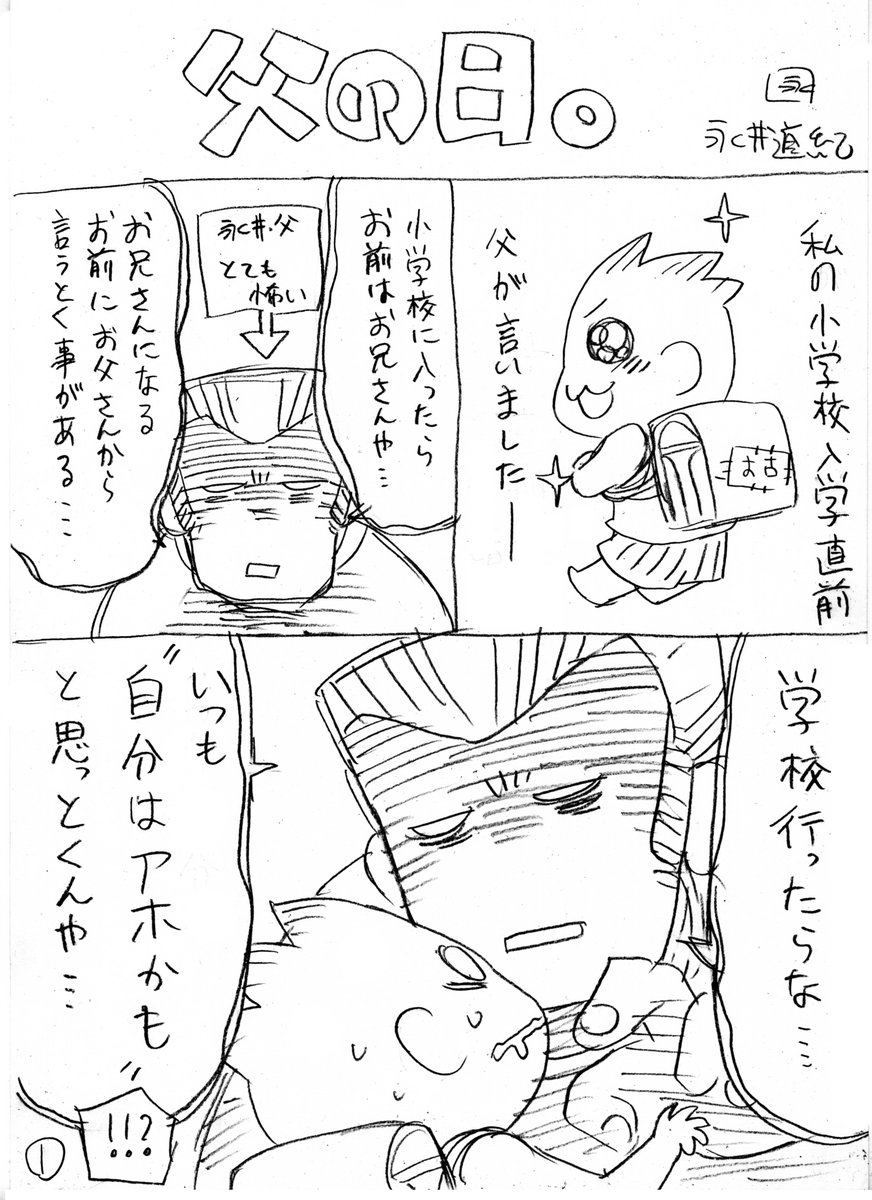 父の日。
画
永井道紀
私の小学校入学直前
父が言いました―
お古
小学校に入ったら
お前はお兄さんや…
永井・父
とても
怖い
お兄さんになる
お前にお父さんから
言うとく事がある…
学校行ったらな…
いつも
“自分はアホかも”
と思っとくんや…
!!?
①